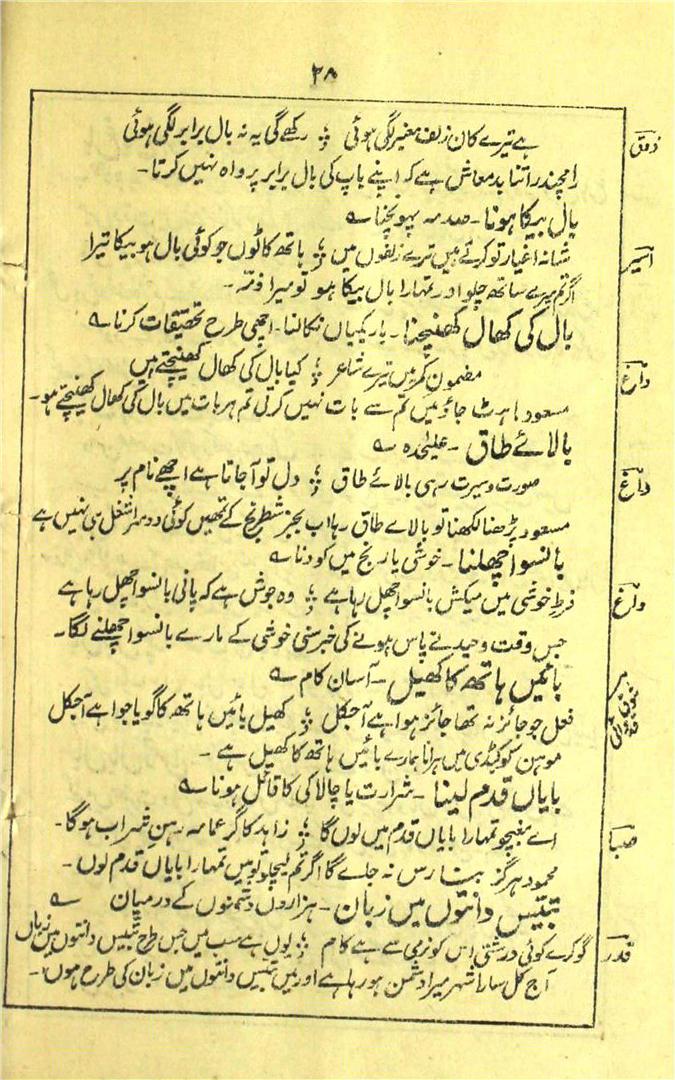 ۲۸
ذوق
ہے تیرے کان زلف معنبر لگی ہوئی ؛ رکھے گی یہ نہ بال برابر لگی ہوئی
رامچندر اتنا بدمعاش ہے کہ اپنے باپ کی بال برابر پرواہ نہیں کرتا۔
بال بیکا ہونا۔ صدمہ پہونچنا ؎
اسیر
شانہ اغیار تو کرتے ہیں ترے زلفوں میں ؛ ہاتھ کاٹوں جو کوئی بال ہو بیکا تیرا
اگر تم میرے ساتھ چلو اور تمہارا بال بیکا ہو تو میرا ذمہ۔
بال کی کھال کھینچنا۔ باریکیاں نکالنا۔ اچھی طرح تحقیقات کرنا ؎
داغ
مضمون کمر میں تیرے شاعر ؛ کیا بال کی کھال کھینچتے ہیں
مسعود ہٹ جاؤ میں تم سے بات نہیں کرتی تم ہر بات میں بال کی کھال کھینچتے ہو۔
بالائے طاق۔ علیٰحدہ ؎
داغ
صورت و سیرت رہی بالائے طاق ؛ دل تو آ جاتا ہے اچھے نام پر
مسعود پڑھنا لکھنا تو بالاے طاق رہا اب بجز شطرنج کے تمھیں کوئی دوسرا شغل ہی نہیں ہے
بانسوا چھلنا۔ خوشی یا رنج میں کودنا ؎
داغ
فرط خوشی میں میکش بانسوا چھل رہا ہے ؛ وہ جوش ہے کہ پانی بانسوا چھل رہا ہے
جس وقت وحید نے پاس ہونے کی خبر سنی خوشی کے مارے بانسوا چھلنے لگا۔
بائیں ہاتھ کا کھیل۔ آسان کام ؎
شوق قدوائی
فعل جو جائز نہ تھا جائز ہوا ہے آجکل ؛ کھیل بائیں ہاتھ کا گویا جوا ہے آجکل
موہن کو کبڈی میں ہرانا ہمارے بائیں ہاتھ کا کھیل ہے۔
بایاں قدم لینا۔ شرارت یا چالاکی کا قائل ہونا ؎
صبا
اے مغبچو تمہارا بایاں قدم میں لوں گا ؛ زاہد کا گر عمامہ رہن شراب ہو گا۔
محمود ہرگز بنارس نہ جاے گا اگر تم لیچلو تو میں تمہارا بایاں قدم لوں۔
بتیس دانتوں میں زبان۔ ہزاروں دشمنوں کے درمیان ؎
قدر
گو کرے کوئی درشتی اس کو نرمی سے ہے کام ؛ یوں ہے سب میں جس طرح بتیس دانتوں میں زباں
آج کل سارا شہر میرا دشمن ہو رہا ہے اور میں بتیس دانتوں میں زبان کی طرح ہوں۔